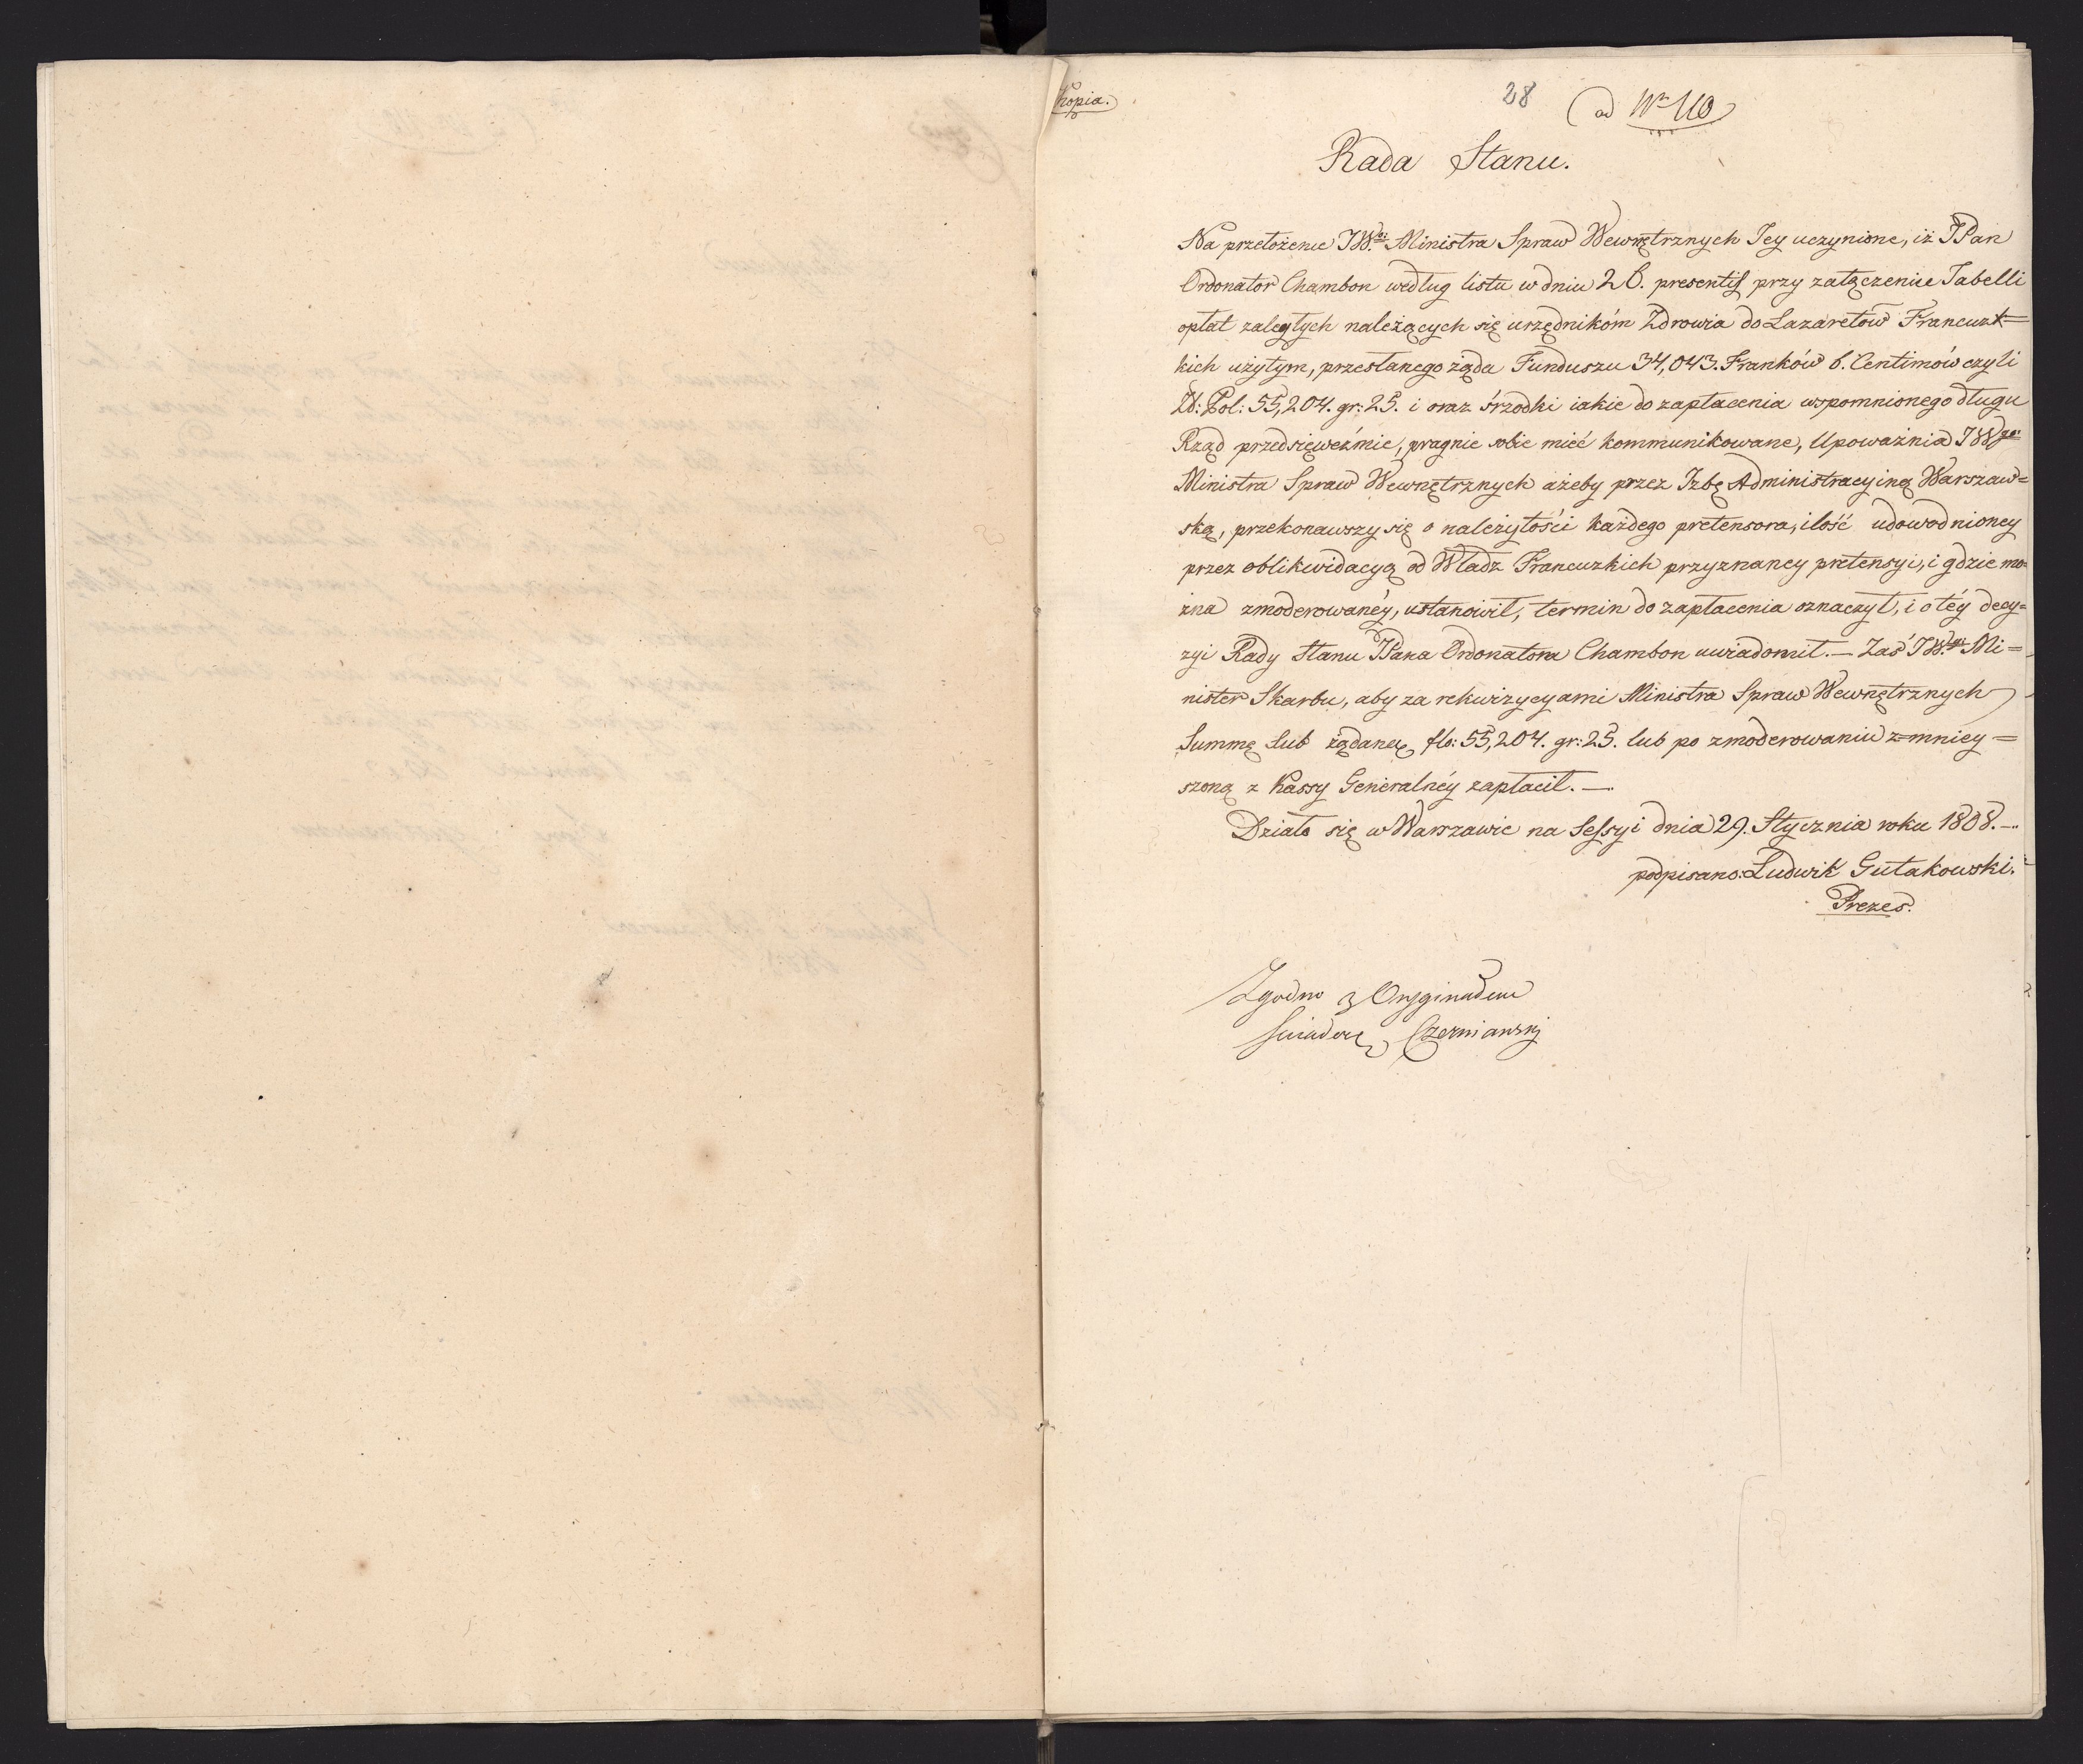 Kopia.
28 (ad Nr 110)
Rada Stanu.
Na przełożenie JWgo Ministra Spraw Wewnętrznych Jey uczynione, iż JPan
Ordonator Chambon według listu w dniu 26. presentis przy załączeniu Tabelli
opłat zaległych należących się urzędnikóm Zdrowia do Lazaretów Francuz=
kich użytym, przesłanego żąda Funduszu 34,043. Franków 6. Centimów czyli
Zł: Pol: 55,204. gr: 25. i oraz śrzodki iakie do zapłacenia wspomnionego długu
Rząd przedsięweźmie, pragnie sobie mieć kommunikowane, Upoważnia JWgo
Ministra Spraw Wewnętrznych ażeby przez Izbę Administracyiną Warszaw=
ską, przekonawszy się o należytości każdego pretensora, ilość udowodnioney
przez oblikwidacyą od Władz Francuzkich przyznaney pretensyi, i gdzie mo=
żna zmoderowanéy, ustanowił, termin do zapłacenia oznaczył, i o téy decy=
zyi Rady Stanu JPana Ordonatora Chambon uwiadomił. — Zaś JW. Mi=
nister Skarbu, aby za rekwizycyami Ministra Spraw Wewnętrznych
Summę lub żądaną flo: 55,204. gr: 25. lub po zmoderowaniu zmniey=
szoną z Kassy Generalnéy zapłacił. —
Działo się w Warszawie na Sessyi dnia 29. Stycznia roku 1808. —
podpisano: Ludwik Gutakowski.
Prezes.
Zgodno z Oryginałem
świadczę Czerniawski